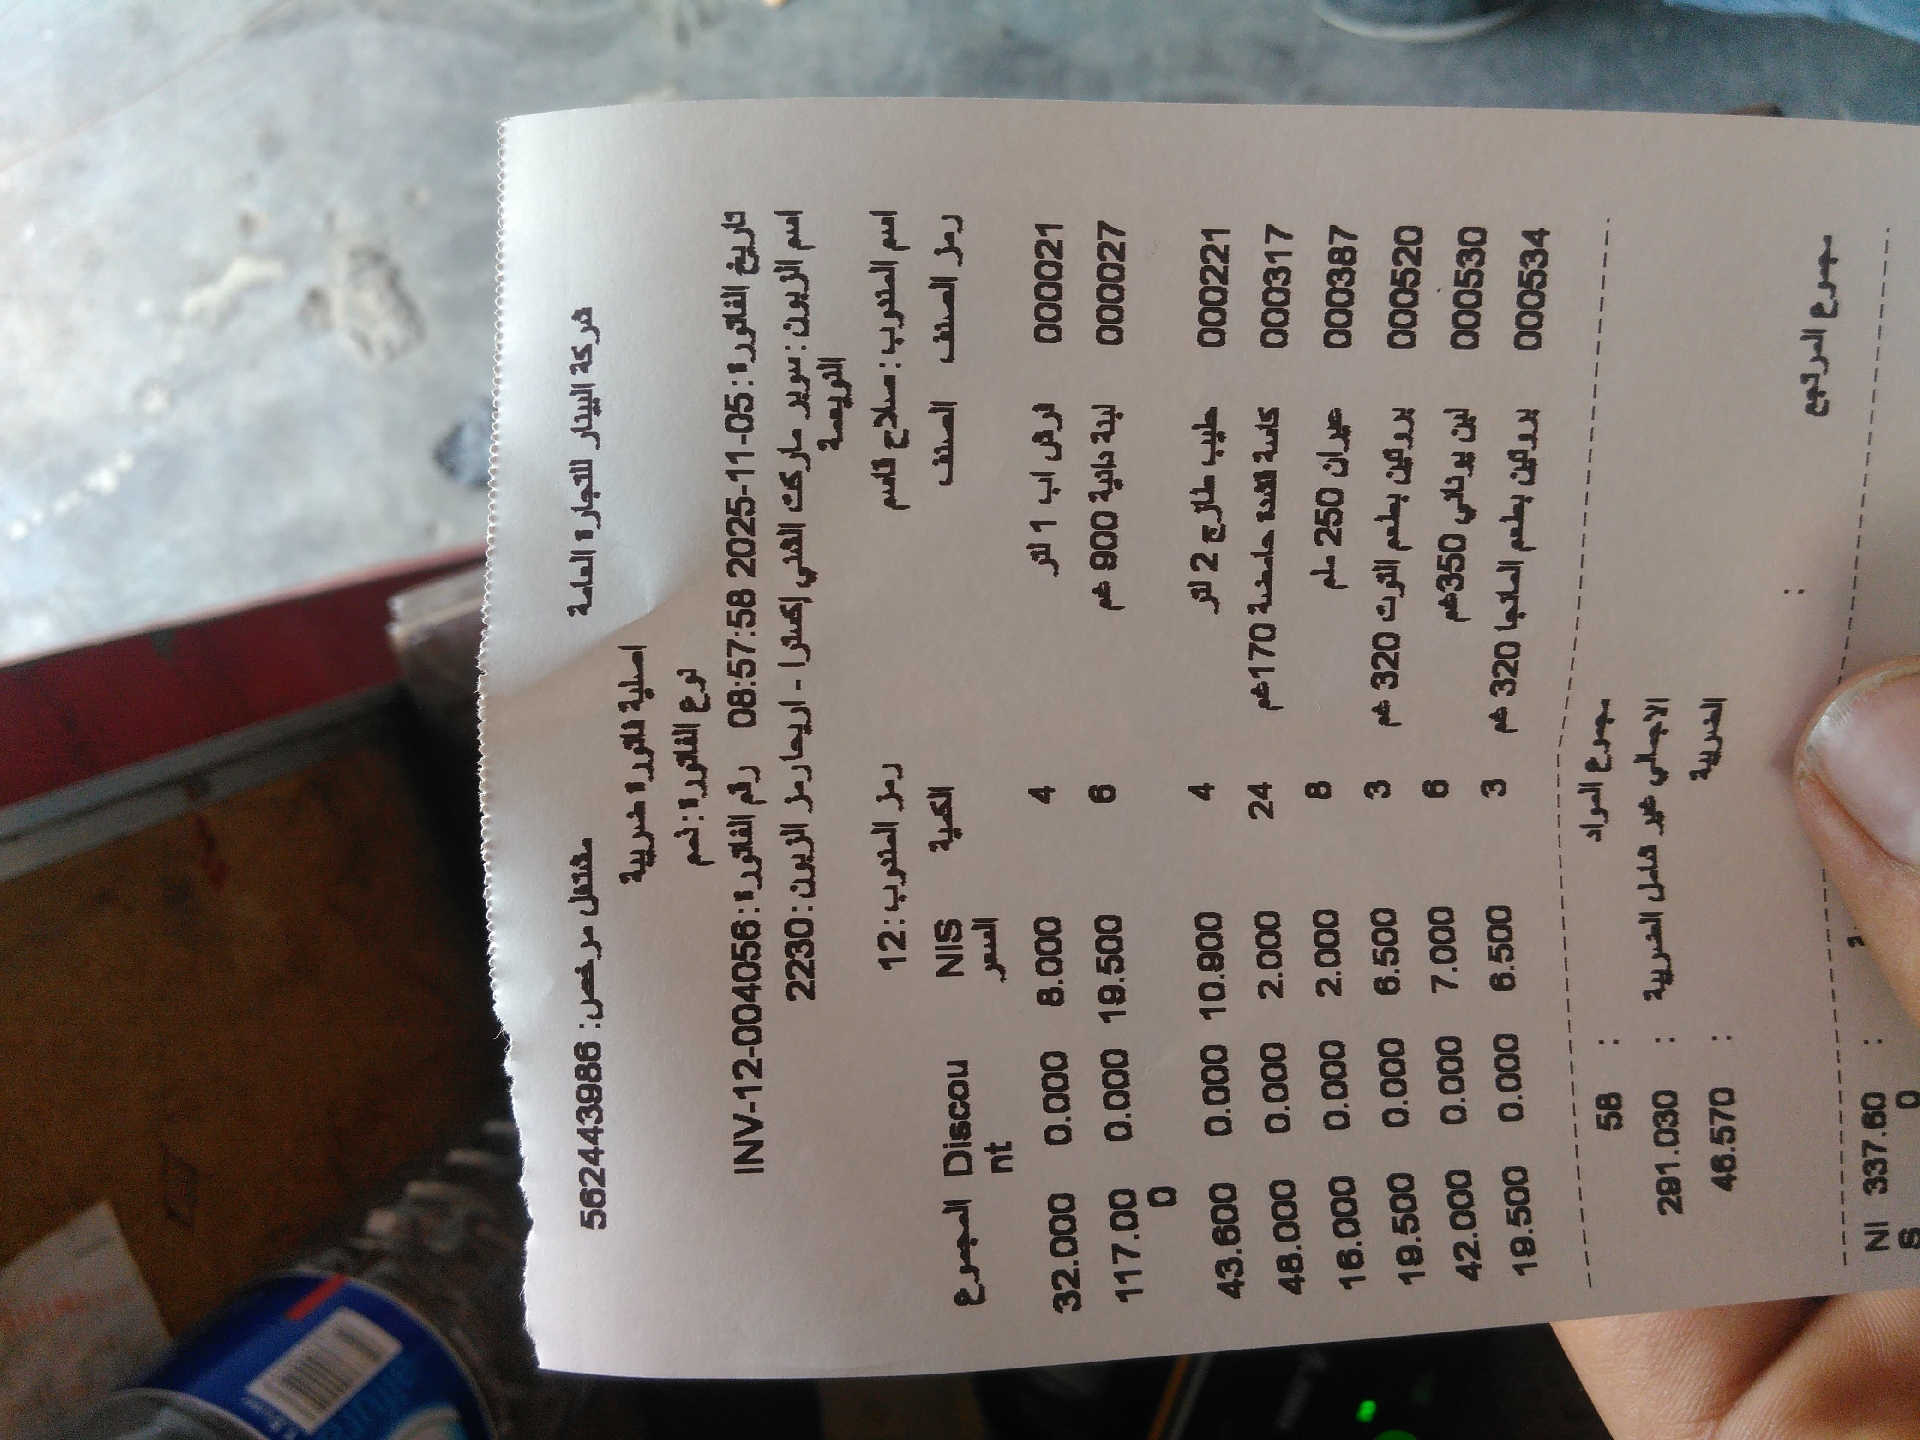 شركة البيدار للتجارة العامة مشتغل مرخص: 562443986
اصلية فاتورة ضريبية
نوع الفاتورة: ذمم
تاريخ الفاتورة: 2025-11-05 08:57:58 رقم الفاتورة: INV-12-004056
اسم الزبون: سوبر ماركت الغني إكسترا - اريحا رمز الزبون: 2230
اسم المندوب: صلاح قاسم رمز المندوب: 12
رمز الصنف الصنف الكمية NIS السعر Discount المجموع
000021 فرش اب 1 لتر 4 8.000 0.000 32.000
000027 لبنة بلدية 900 غم 6 19.500 0.000 117.000
000221 حليب طازج 2 لتر 4 10.900 0.000 43.600
000317 كاسة قشدة حامضة 170غم 24 2.000 0.000 48.000
000387 عيران 250 ملم 8 2.000 0.000 16.000
000520 بروتين بطعم التوت 320 غم 3 6.500 0.000 19.500
000530 لبن يوناني 350غم 6 7.000 0.000 42.000
000534 بروتين بطعم المانجا 320 غم 3 6.500 0.000 19.500
مجموع المواد : 58
الاجمالي غير شامل الضريبة : 291.030
الضريبة : 46.570
مجموع المرتجع :
: 337.600 NIS